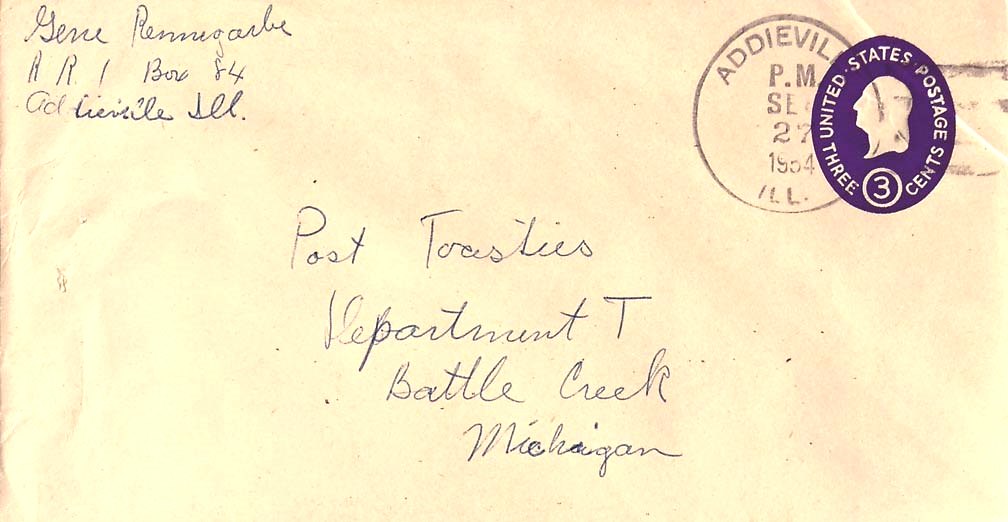 Gene Rennegarbe
R R 1 Box 84
Addieville Ill.
ADDIEVILL
P.M
SE
27
1954
ILL.
UNITED STATES POSTAGE
THREE 3 CENTS
Post Toasties
Department T
Battle Creek
Michigan